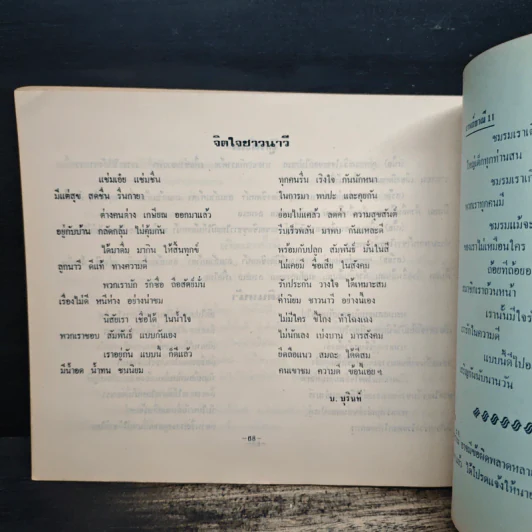 จิตใจชาวนาวี
แช่มเอ๋ย แช่มชื่น ทุกคนรื่น เริงใจ กันนักหนา
มีแต่สุข สดชื่น รื่นกายา ในการมา พบปะ และคุยกัน
ต่างคนต่าง เกษียณ ออกมาแล้ว ย่อมไม่แคล้ว ลดค่ำ ความสุขสันต์
อยู่กับบ้าน กลัดกลุ้ม ไม่คุ้มกัน รีบเร็วพลัน มาพบ กันแหละดี
ได้มาดื่ม มากิน ให้สิ้นทุกข์ พร้อมกับปลุก สัมพันธ์ มั่นไม่ลี้
ลูกนาวี ดีแท้ ทางความดี ไม่เคยมี ชื่อเสีย ในสังคม
พวกเรานัก รักชื่อ ถือสัตย์มั่น รับประกัน วางใจ ได้เหมาะสม
เรื่องไม่ดี หนีห่าง อย่างน่าชม ค่านิยม ชาวนาวี อย่างนี้เอง
นิสัยเรา เชื่อได้ ในน้ำใจ ไม่มีใคร ขี้โกง ทำโฉงเฉง
พวกเราชอบ สัมพันธ์ แบบกันเอง ไม่นักเลง เบ่งบาน มารสังคม
เราอยู่กัน แบบนี้ ก็ดีแล้ว ยึดถือแนว สมถะ ได้ดีสม
มีน้ำอด น้ำทน ชนนิยม คนเขาชม ความดี ข้อนี้เอย ๆ
น. บุรินท์
-68-
ใหญ่เด็กทุกท่านสน
พวกเราทุกคนมี
ชมรมแม้จะ
ของเราไม่เหมือนใคร
ถ้อยทีถ้อยอ
หน้า
เรานั้นมีใจรั
รักในความดี
แบบนี้ดีไปอ